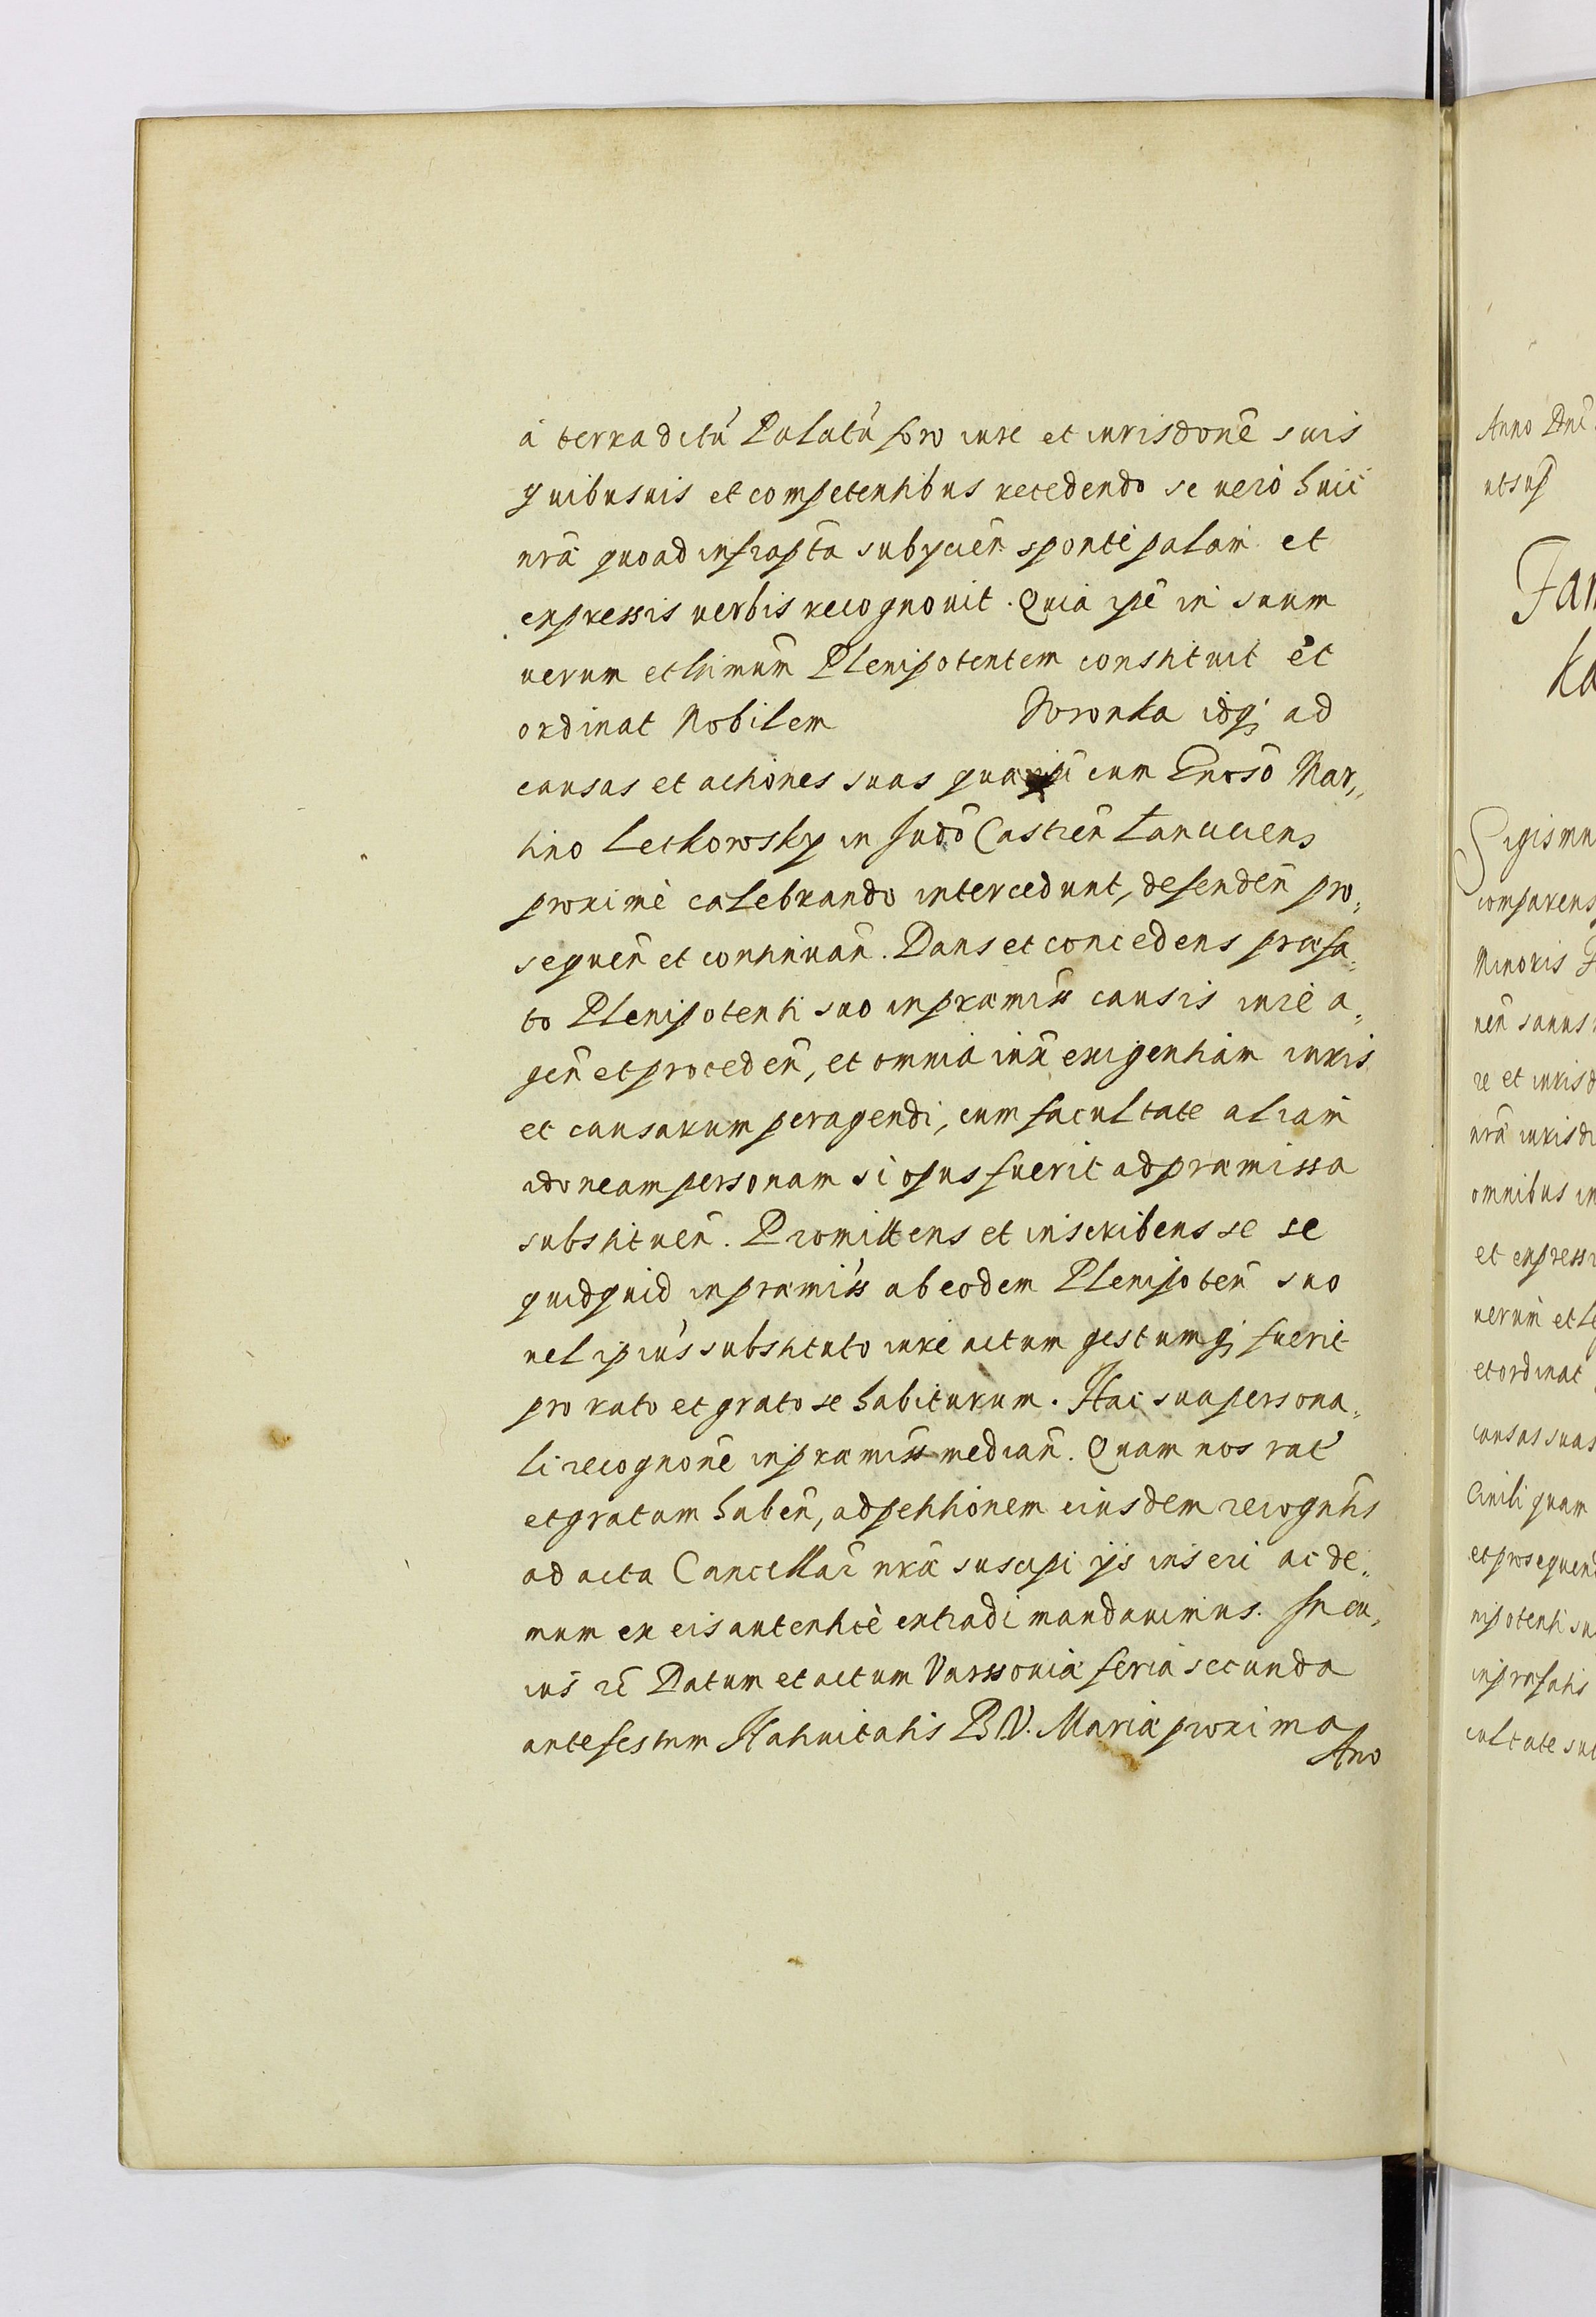 à terra dctũ Palatũ foro iure et iurisdonẽ suis
quibusuis et competentibus recedendo se verò huic
nrã quoad infrapta subycien̄ spontè palam et
expressis verbis recognouit. Quia ipẽ in suum
verum et ltimum Plenipotentem constituit et
ordinat Nobilem Woronka idq; ad
causas et actiones suas cum Gnoso Mar„
tino Letkowsky in Judo Castren̄ Lanciciens
proximè celebrando intercedunt, defenden̄ pro„
sequen̄ et continuan̄. Dans et concedens præfa„
to Plenipotenti suo in præmiss causis iurè a„
gen̄ et proceden̄, et omnia iux exigentiam iuris
et causarum peragendi, cum facultate aliam
idoneam personam si opus fuerit ad præmissa
substituen̄. Promittens et inscribens se se
quidquid in præmiss ab eodem Plenipoten̄ suo
vel ipius substituto iure actum gestumq; fuerit
pro rato et grato se habiturum. Hac sua persona„
li recognone in præmiss median̄. Quam nos ratã
et gratam haben̄, ad petitionem eiusdem recogntis
ad acta Cancellar̄ nræ suscipi ijs inseri ac de„
mum ex eis autenticè extradi mandauimus. In cu„
ius rẽ Datum et actum Varssouiæ feria secunda
ante festum Natiuitatis B.V. Mariæ proxima
Ano
Anno Dni
utsup
Fam
Ka
Sigismu
comparens
Minoris
nen̄ sanus
re et iurisd
nrã iurisdi
omnibus in
et expressi
verum et le
et ordinat
causas suas
Ciuili quam
et prosequend
nipotenti su
in præfatis
cultate sub